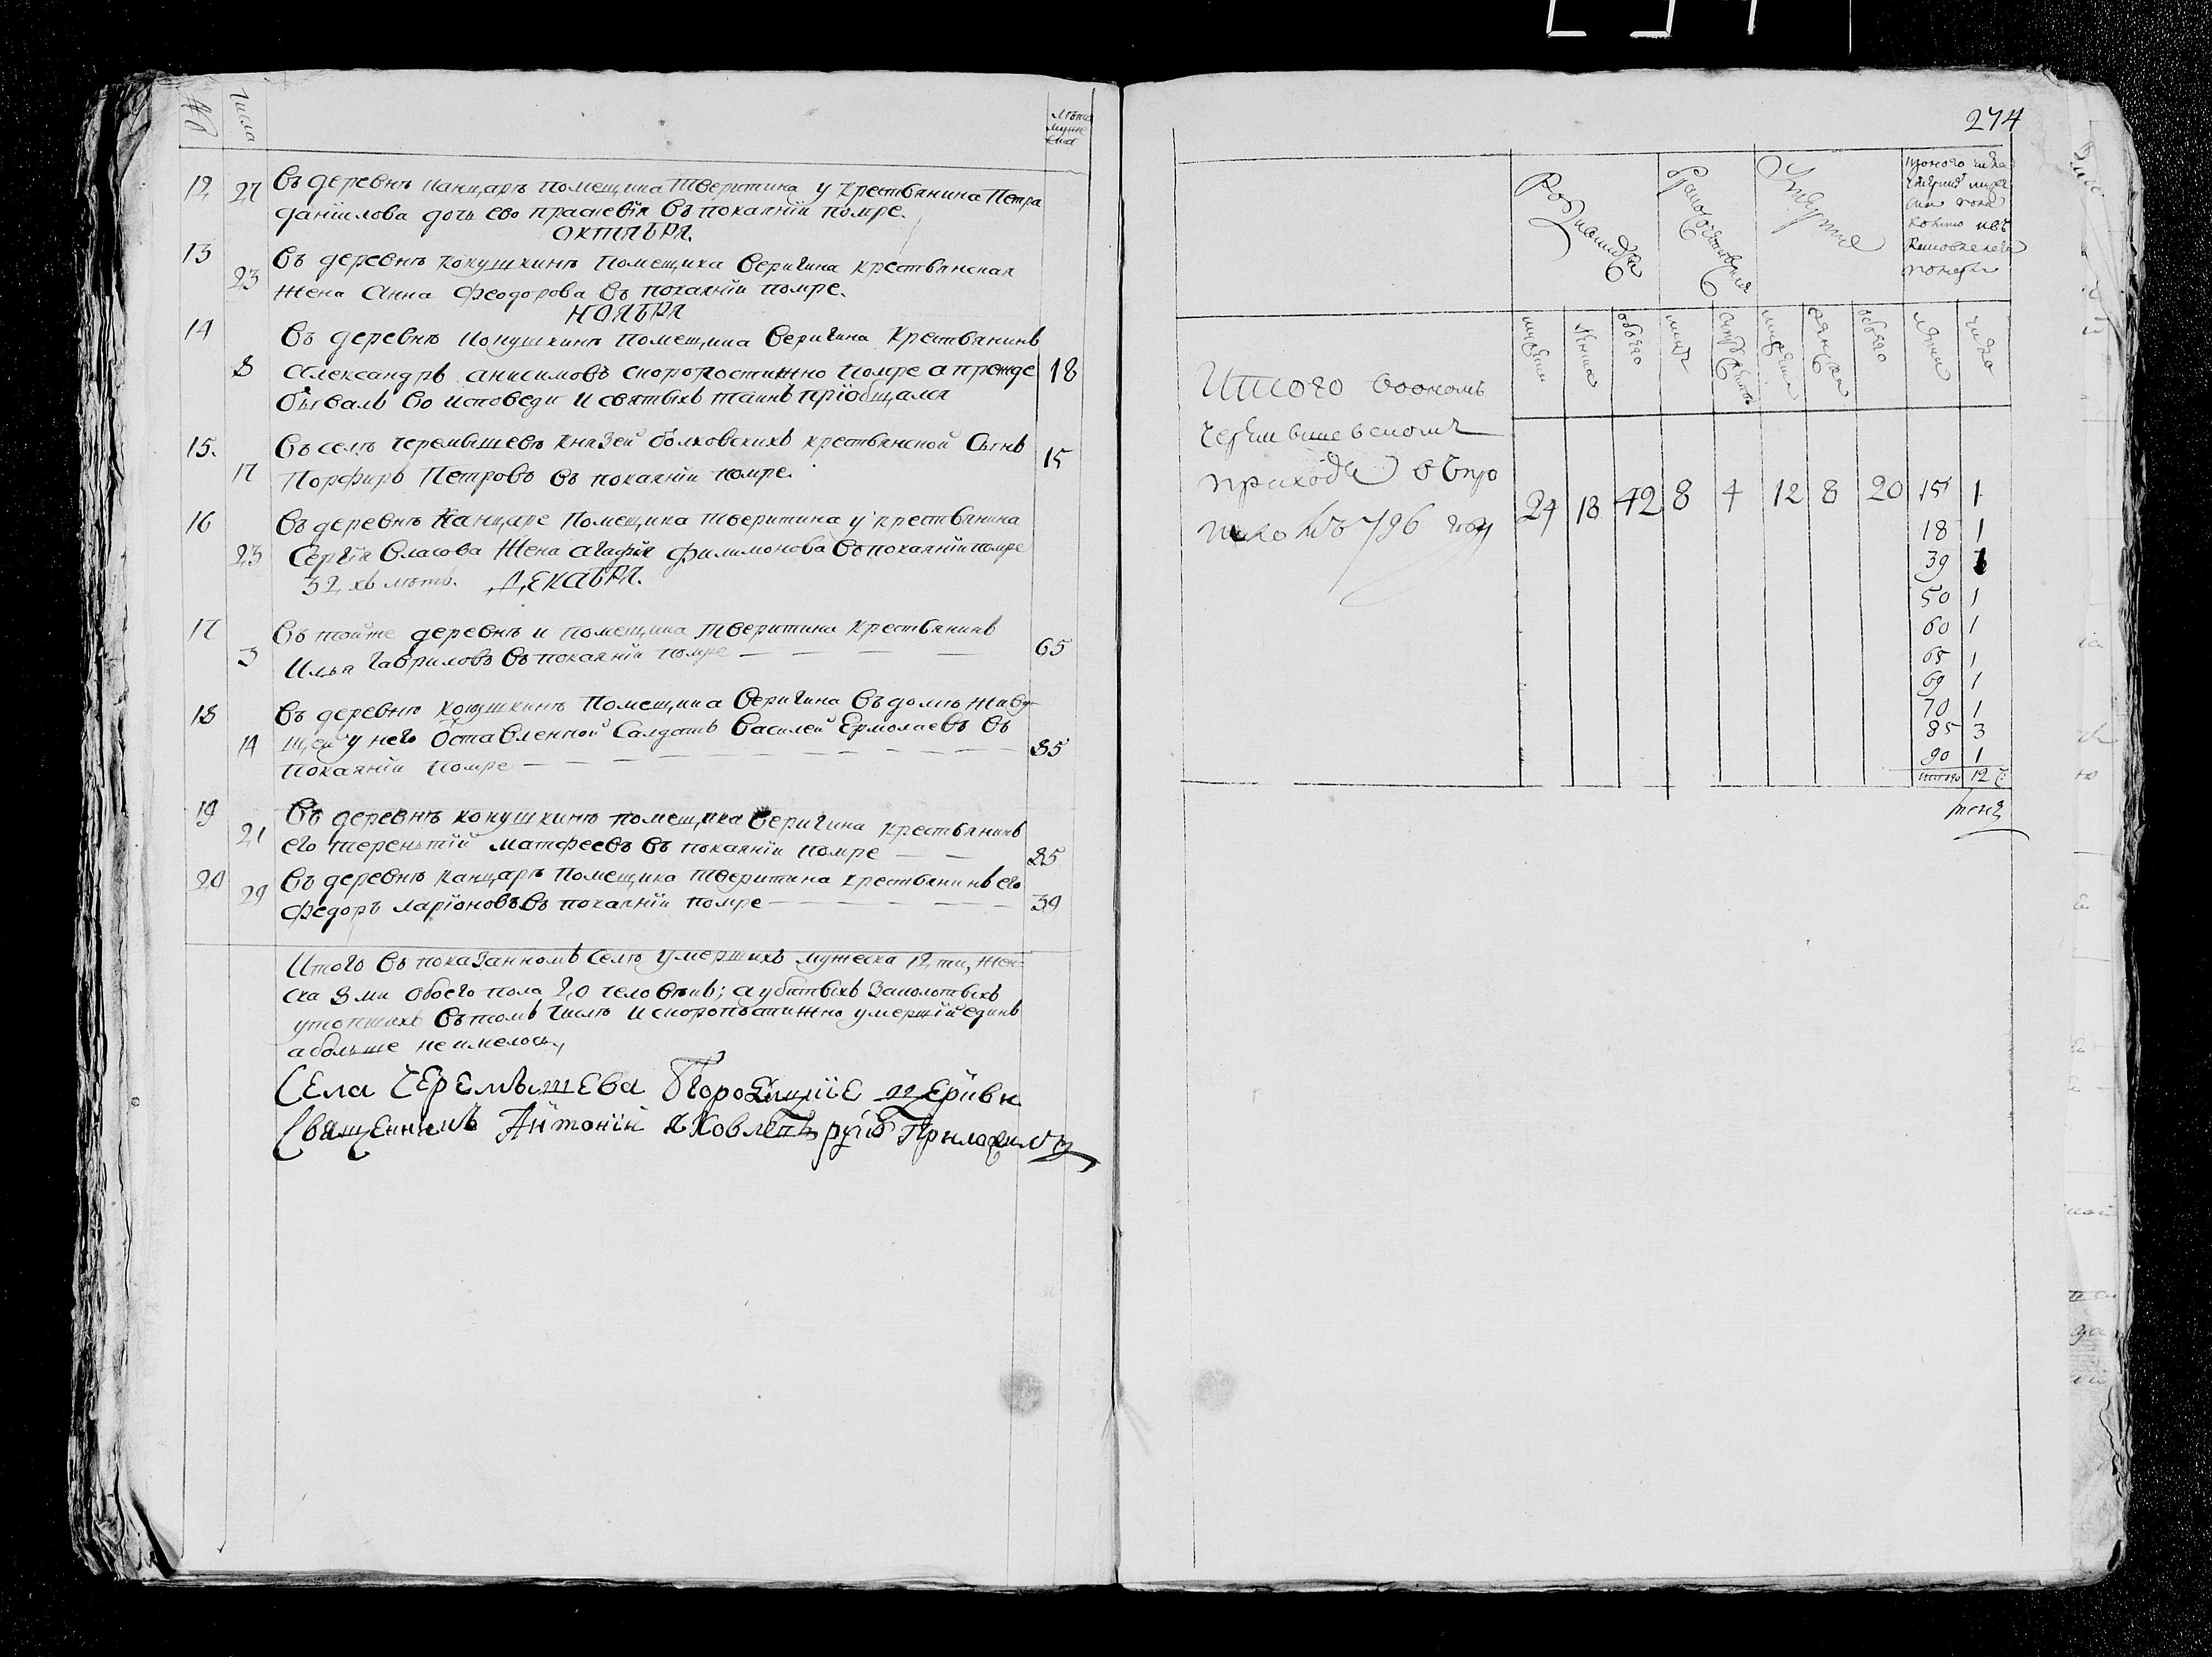 №
Числа
лѣта
муже
ска
12
27
Въ деревнѣ Канцарѣ Помещика Тверитина у крестьянина Петра
Даніилова дочь ево праскевія въ покаяніи помре.
ОКТЯБРЯ.
13
23
Въ деревнѣ Кокушкинѣ Помещика Веригина крестьянская
жена Анна Феодорова въ покаяніи помре.
НОЯБРЯ
14
8
Въ деревнѣ Кокушкинѣ Помещика Веригина Крестьянинъ
Александръ Анисимовъ скоропостижно помре а прежде
бывалъ во исповеди и святыхъ таинъ пріобщался
18
15.
17
Въ селѣ Черемышевѣ Князей болховскихъ крестьянской Сынъ
Порфиръ Петровъ въ покаяніи помре.
15
16
23
Въ деревнѣ Канцаре Помещика Тверитина у крестьянина
Сергія Власова Жена Агафія Филимонова въ покаяніи помре
32 хъ лѣтъ. ДЕКАБРЯ.
17
3
Въ тойже деревнѣ и помещика Тверитина Крестьянинъ
Илья Гавриловъ въ покаяніи помре
65
18
14
Въ деревнѣ Кокушкинѣ Помещика Веригина въ домѣ живу
щей у него Оставленной Салдатъ Василей Ермолаевъ въ
покаяніи помре
85
19
21
Въ деревнѣ Кокушкинѣ помещика Веригина крестьянинъ
его терентій Матфеевъ въ покаяніи помре
85
20
29
Въ деревнѣ Канцарѣ Помещика Тверитина крестьянинъ его
Федоръ Ларіоновъ въ покаяніи помре
39
Итого въ показанномъ Селѣ умершихъ мужеска 12 ти, жен-
ска 8 ми обоего пола 20 человѣкъ; а убитыхъ Заколотыхъ
утопшихъ въ томъ числѣ и скоропостижно умершій единъ
а больше не имелось,
Села Черемышева церкви
Священникъ Антоній Яковлевъ руку Приложилъ
274
Родившихся
Умерше
Итого воономъ
Черемышевскомъ
приходе
796 году
24 18 42 8 4 12 8 20 15 1
18 1
39 1
50 1
60 1
65 1
69 1
70 1
85 3
90 1
итого 12